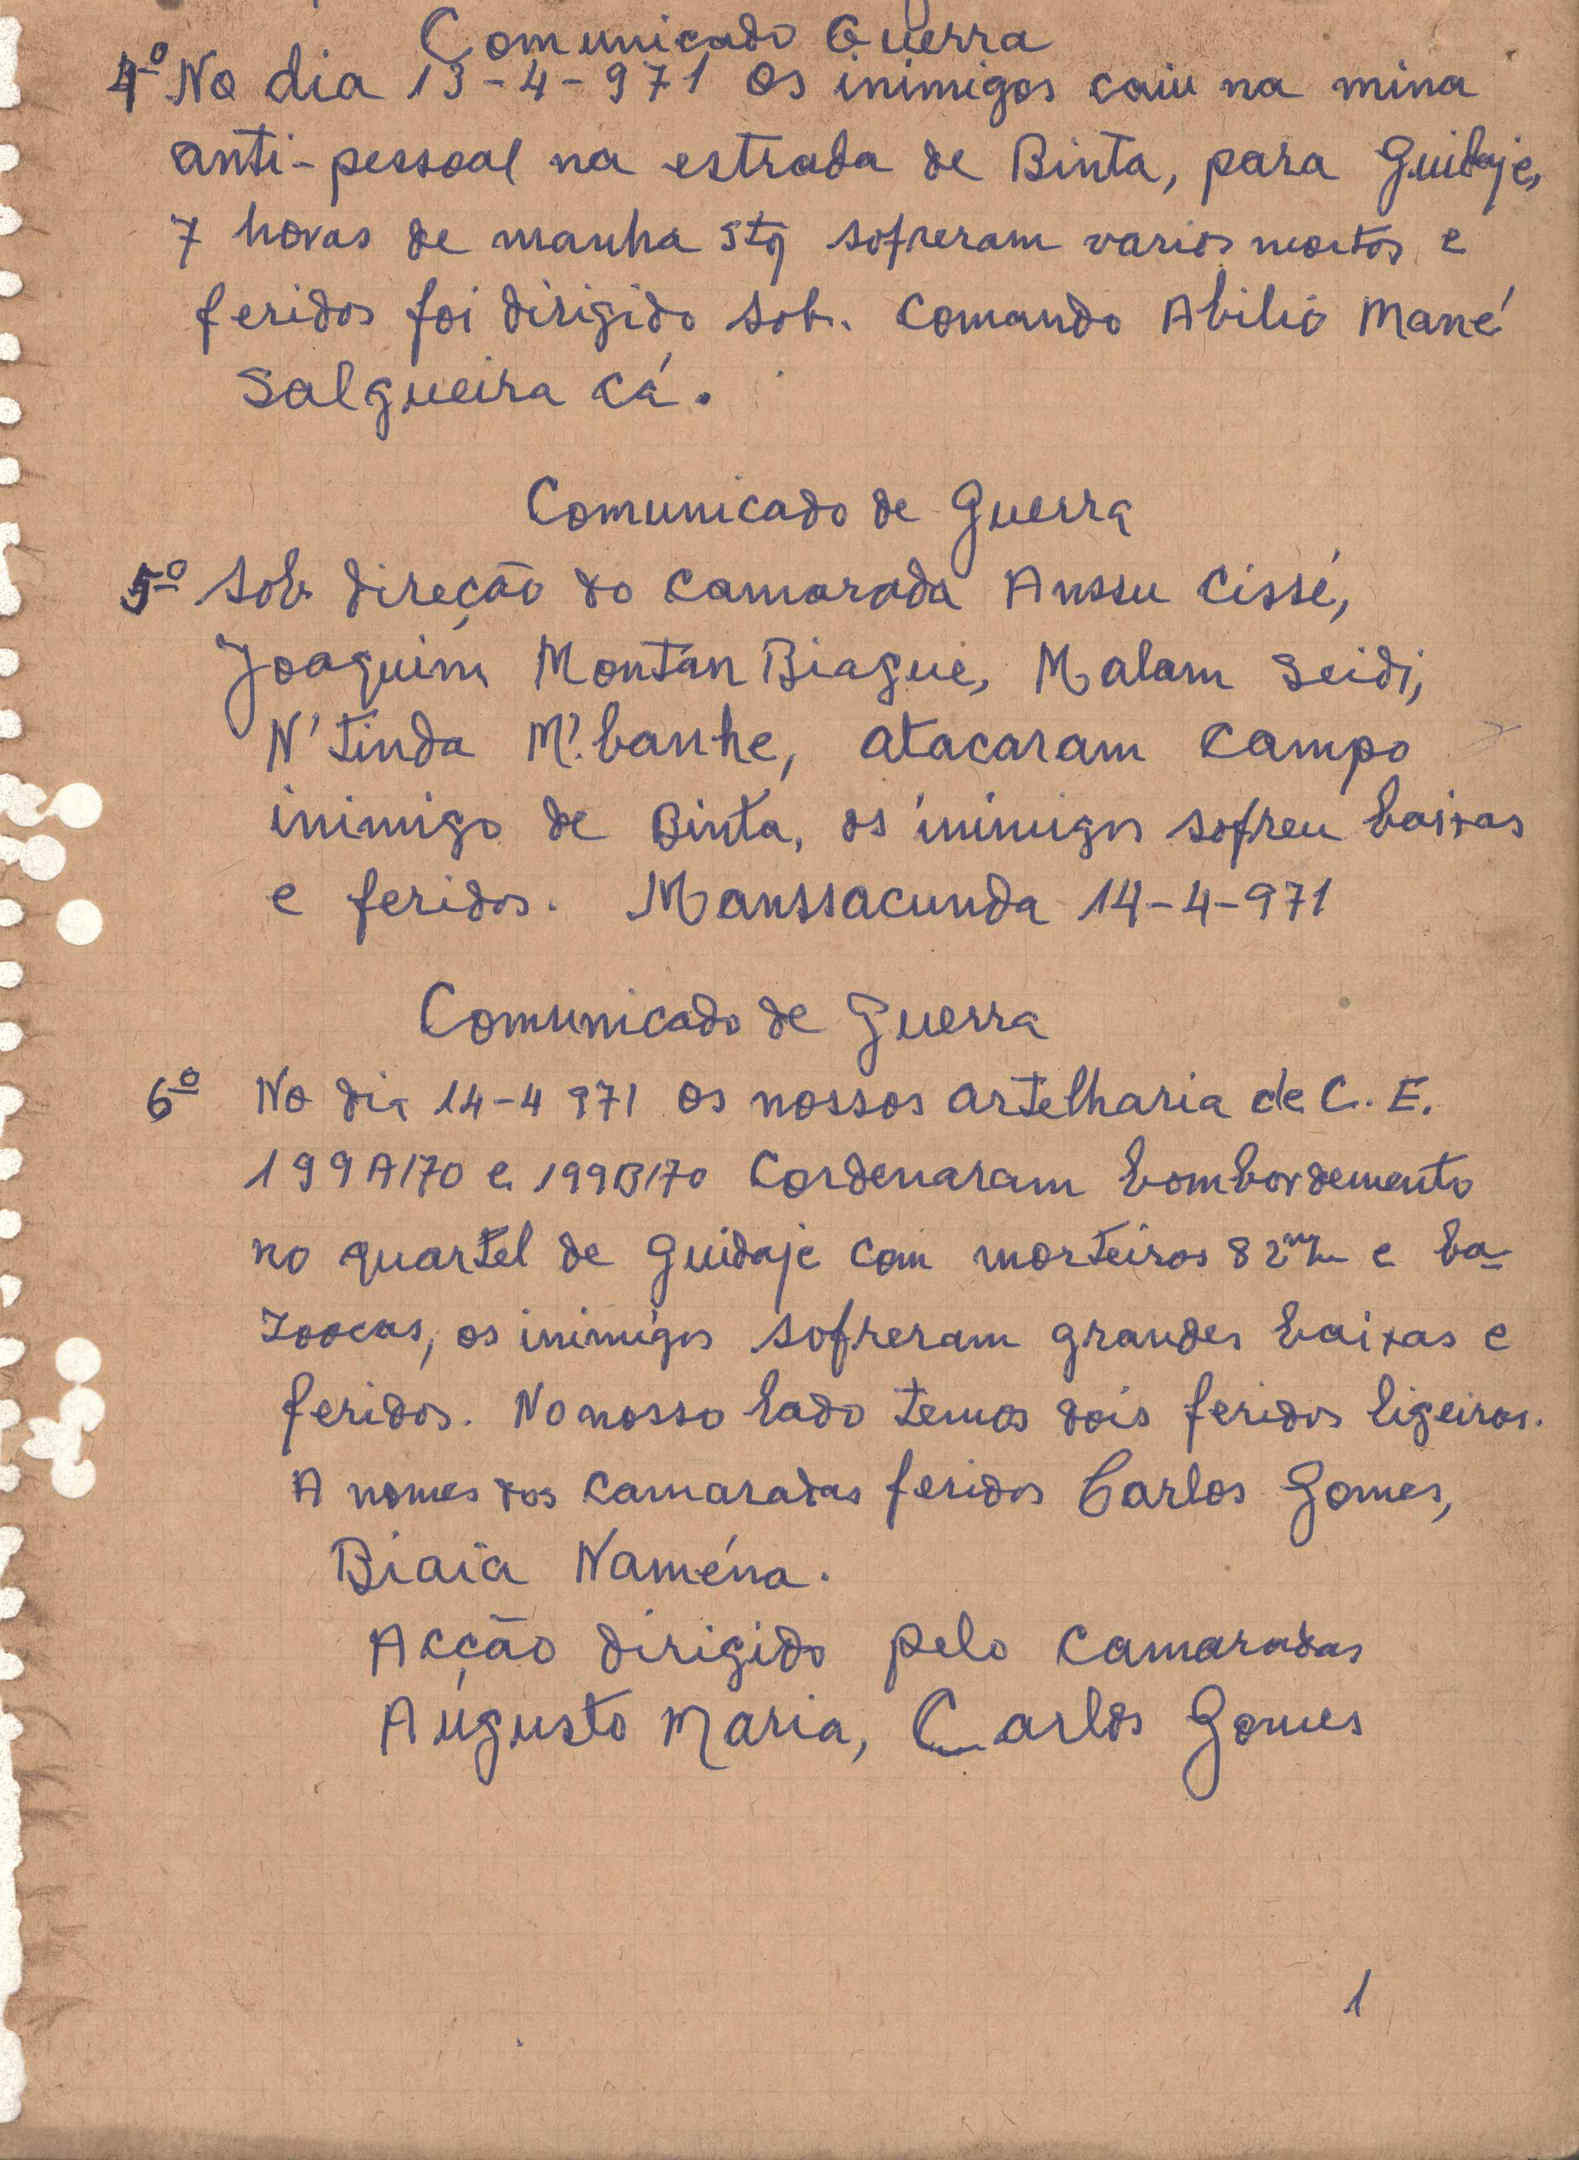 Comunicado Guerra
4º No dia 13-4-971 os inimigos caiu na mina
anti-pessoal na estrada de Binta, para Guidaje,
7 horas de manha sofreram varios mortos e
feridos foi dirigido sob. comando Abilio Mané
Salgueira Cá.
Comunicado de Guerra
5º Sob direção do camarada Anssu Cissé,
Joaquim Montan Biague, Malam Seidi,
N'tinda M'banhe, atacaram campo
inimigo de Binta, os inimigos sofreu baixas
e feridos. Manssacunda 14-4-971
Comunicado de Guerra
6º No dia 14-4 971 os nossos artelharia de C.E.
199A/70 e 199B/70 Cordenaram bombordemento
no quartel de Guidaje com morteiros 82 m/m e ba-
zoocas, os inimigos sofreram grandes baixas e
feridos. No nosso lado temos dois feridos ligeiros.
A nomes dos camaradas feridos Carlos Gomes,
Biaia Naména.
Acção dirigido pelo camaradas
Augusto Maria, Carlos Gomes
1